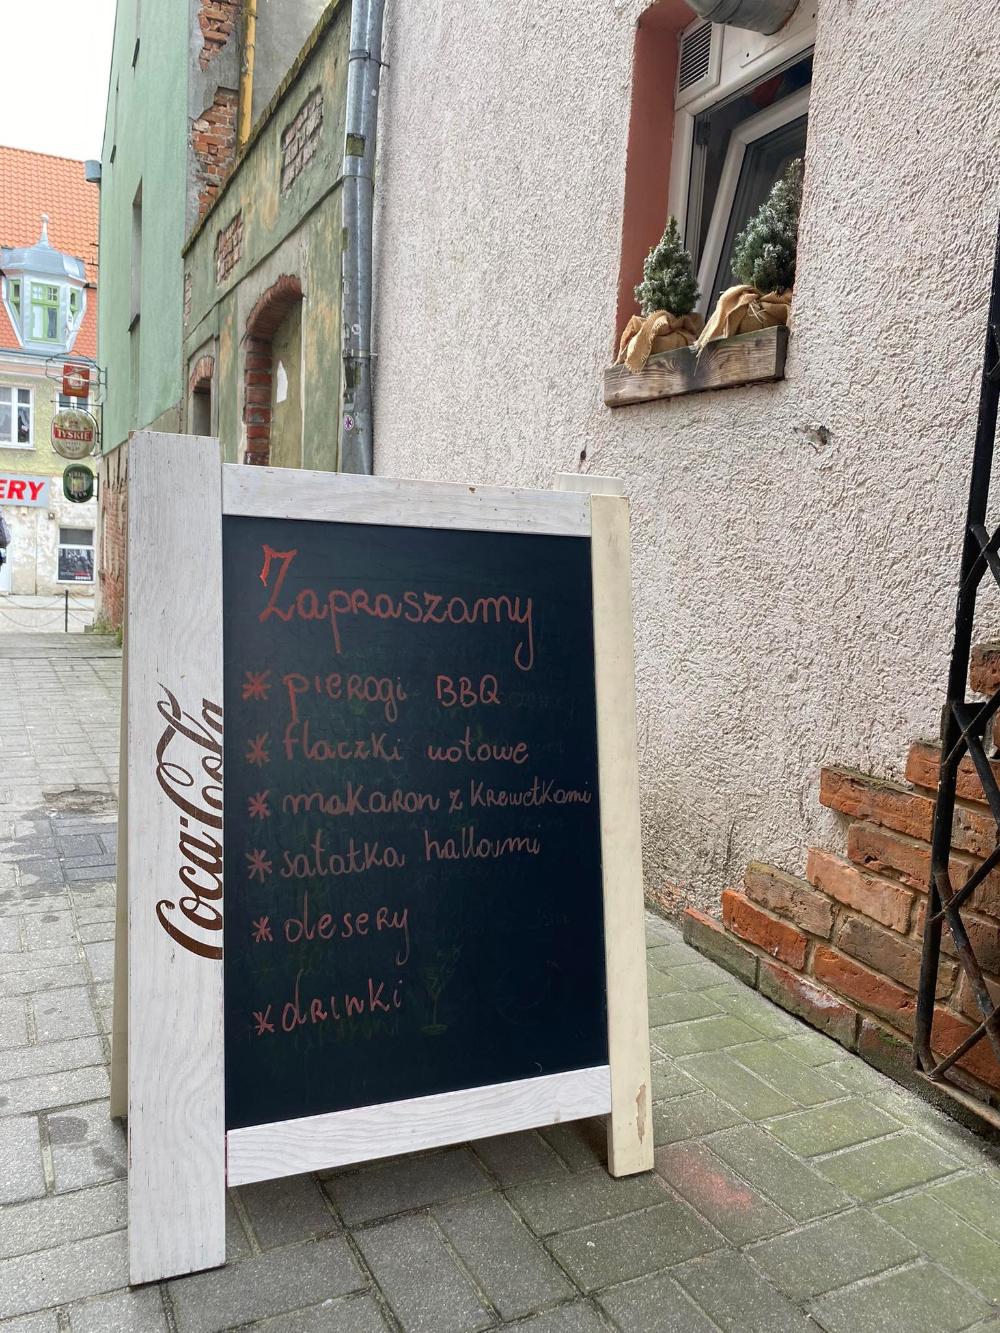 TYSKIE
ERY
Zapraszamy
* pierogi BBQ
* flaczki uotowe
* makaron z krewetkami
* sałatka halloumi
* desery
* drinki
Coca-Cola